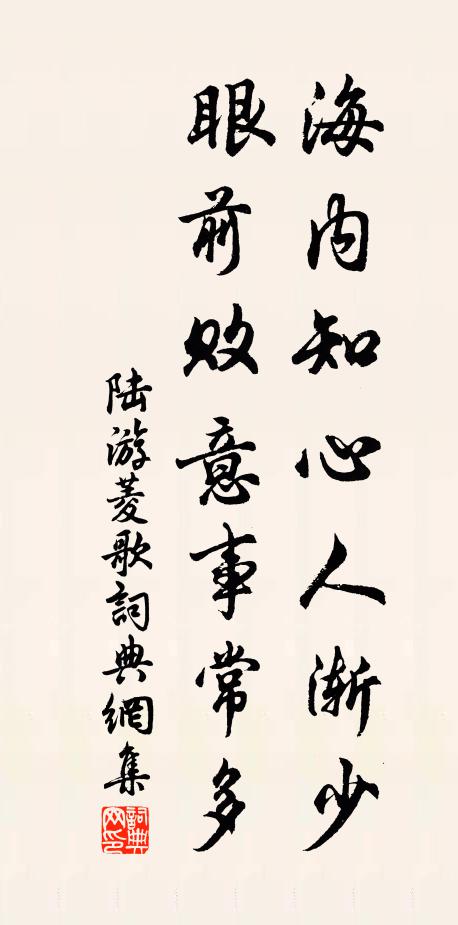 海内知心人渐少
眼前败意事常多
陆游菱歌詞典網集
詞典网印